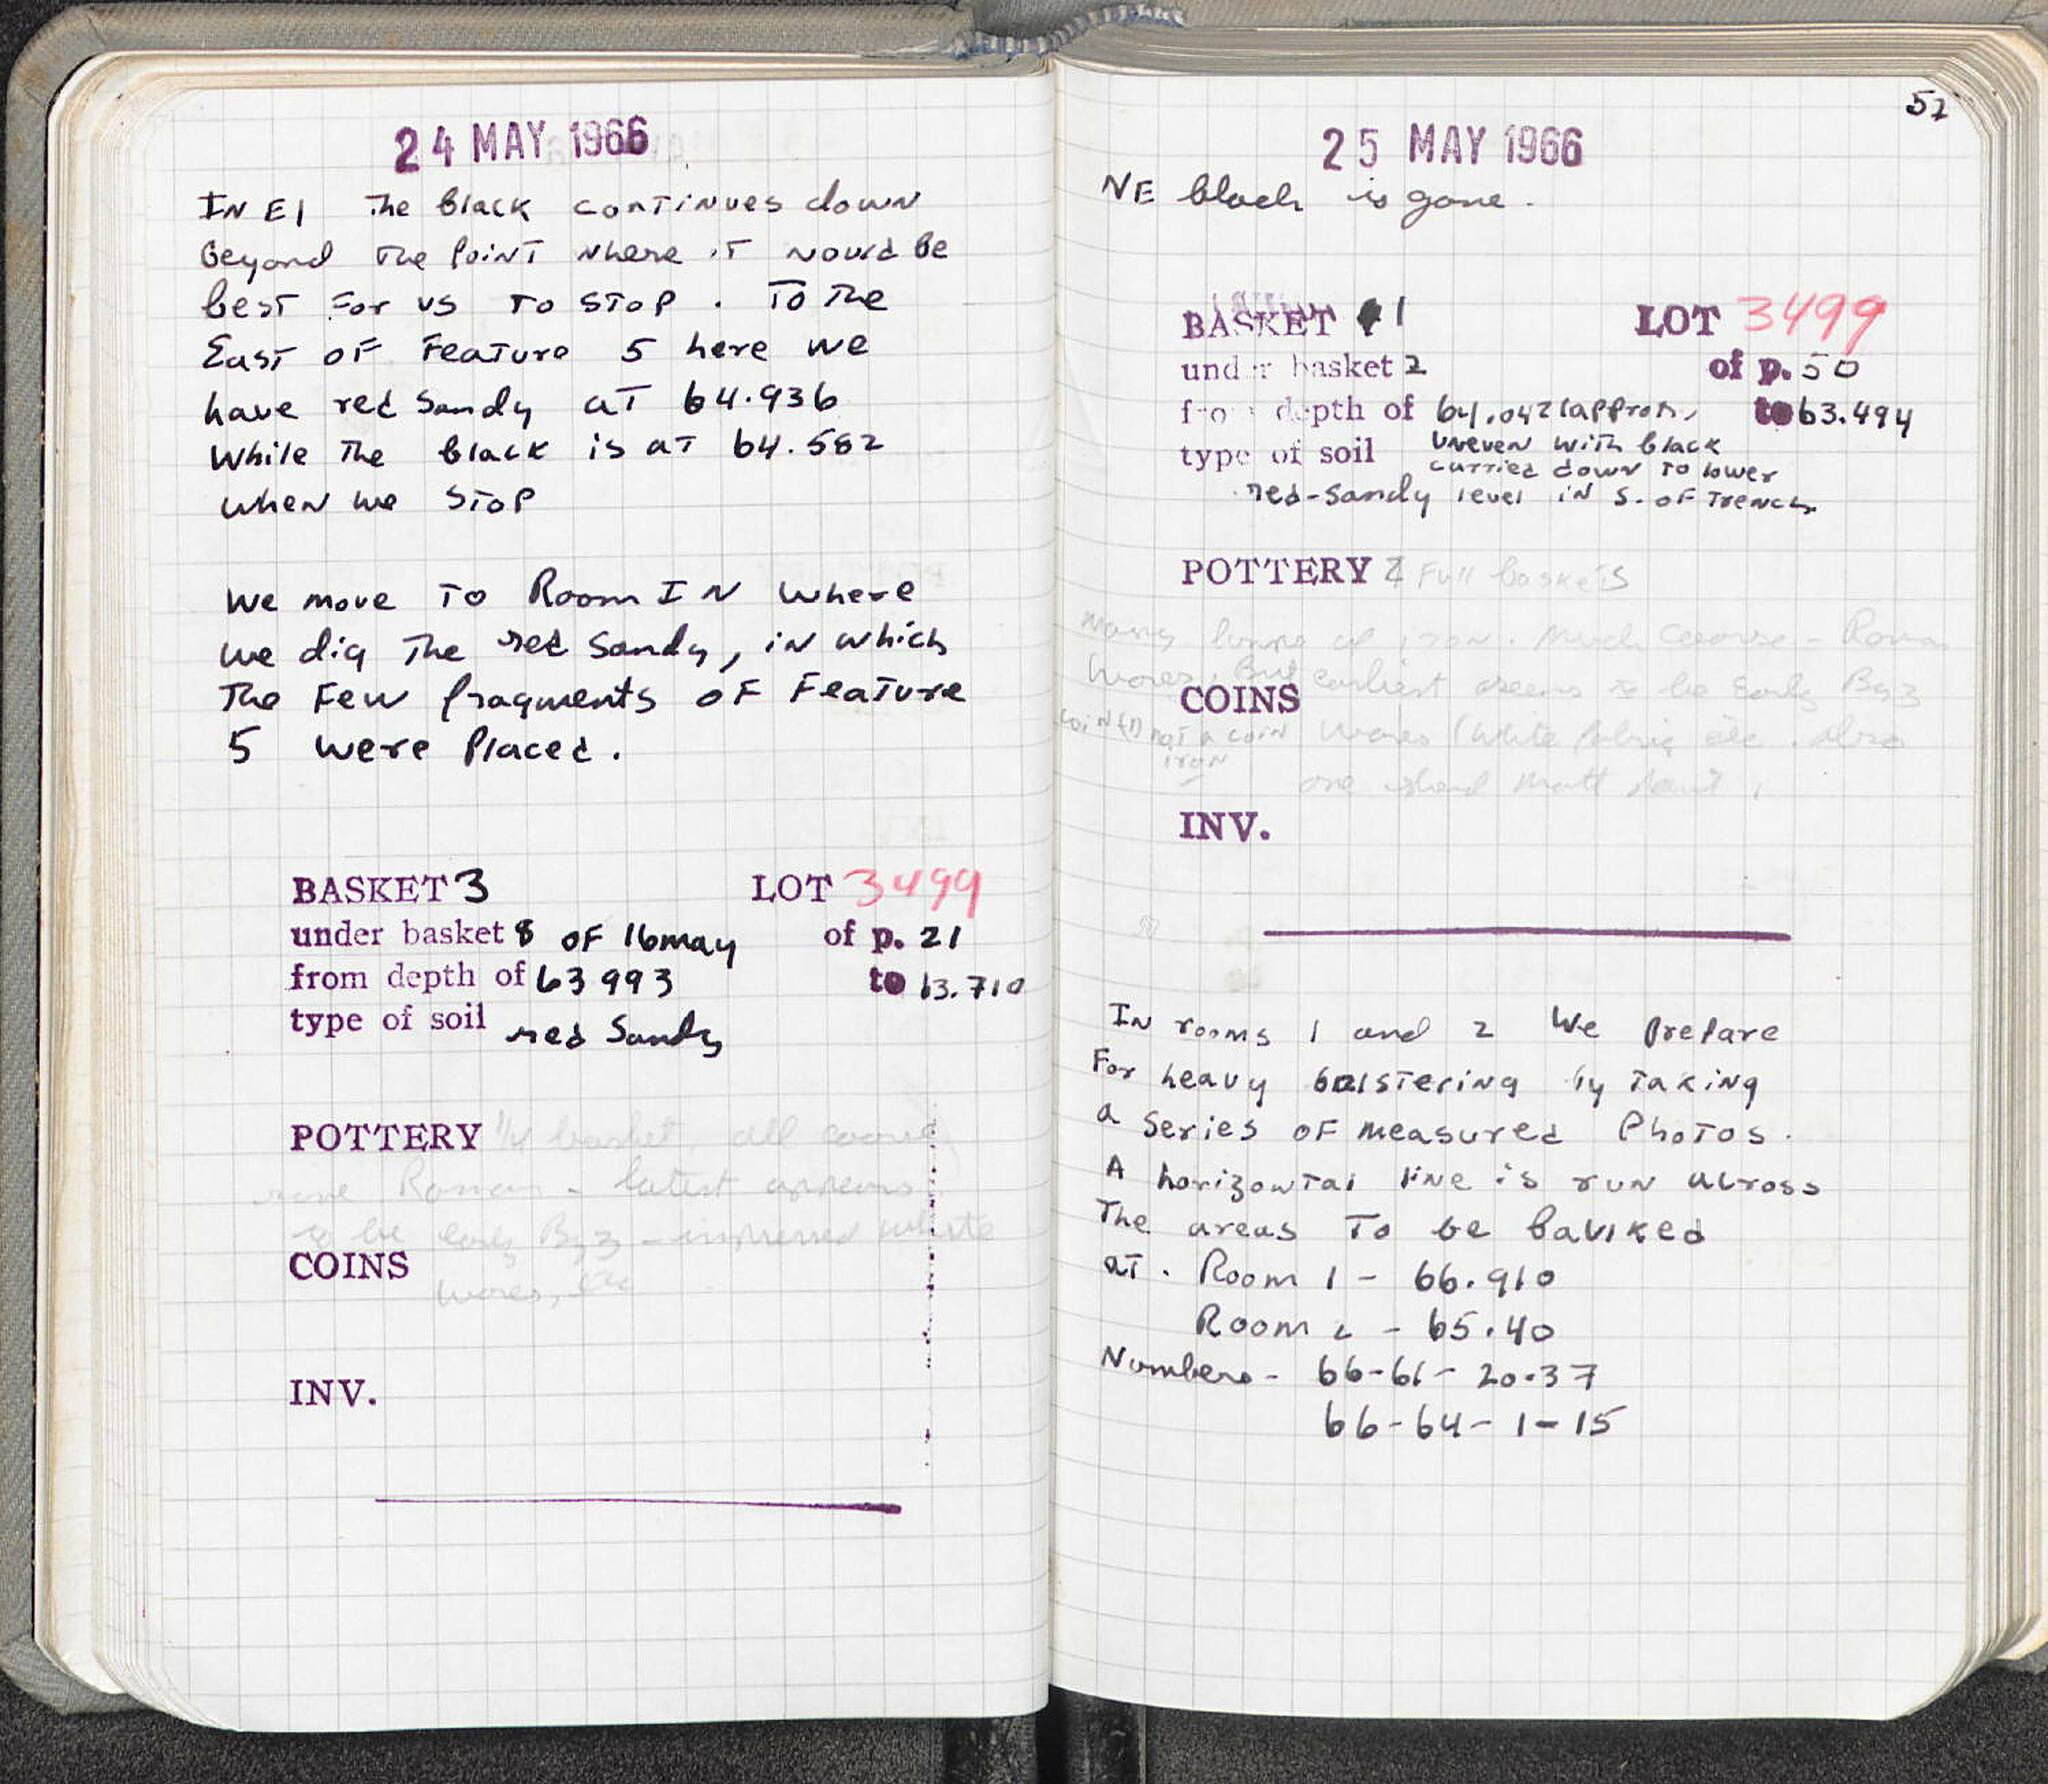 24 MAY 1966
IN E1 The black continues down
beyond the point where it would be
best for us to stop. To the
East of Feature 5 here we
have red sandy at 64.936
While the black is at 64.582
when we stop
We move to Room I N where
we dig the red sandy, in which
The Few fragments of Feature
5 were placed.
BASKET 3 LOT 3499
under basket 8 of 16 may of p. 21
from depth of 63 993 to 63.710
type of soil red Sandy
POTTERY 1/4 basket, all coarse
Roman - latest appears
to be early Byz - impressed white
COINS
wares, etc
INV.
57
25 MAY 1966
NE black is gone.
BASKET 1 LOT 3499
under basket 2 of p. 50
from depth of 64.042 (approx, to 63.494
type of soil uneven with black
carried down to lower
red-sandy level in S. of Trench
POTTERY 2 Full baskets
Many lumps of iron. Much coarse - Roman
wares. But earliest seems to be Early Byz
COINS
coin (1) not a coin wares (white fabric etc. also
iron
one sherd matt paint
INV.
In rooms 1 and 2 We prepare
For heavy bolstering by taking
a series of measured Photos.
A horizontal line is run across
The areas To be baulked
at. Room 1 - 66.910
Room 2 - 65.40
Numbers - 66-61- 20-37
66-64-1-15